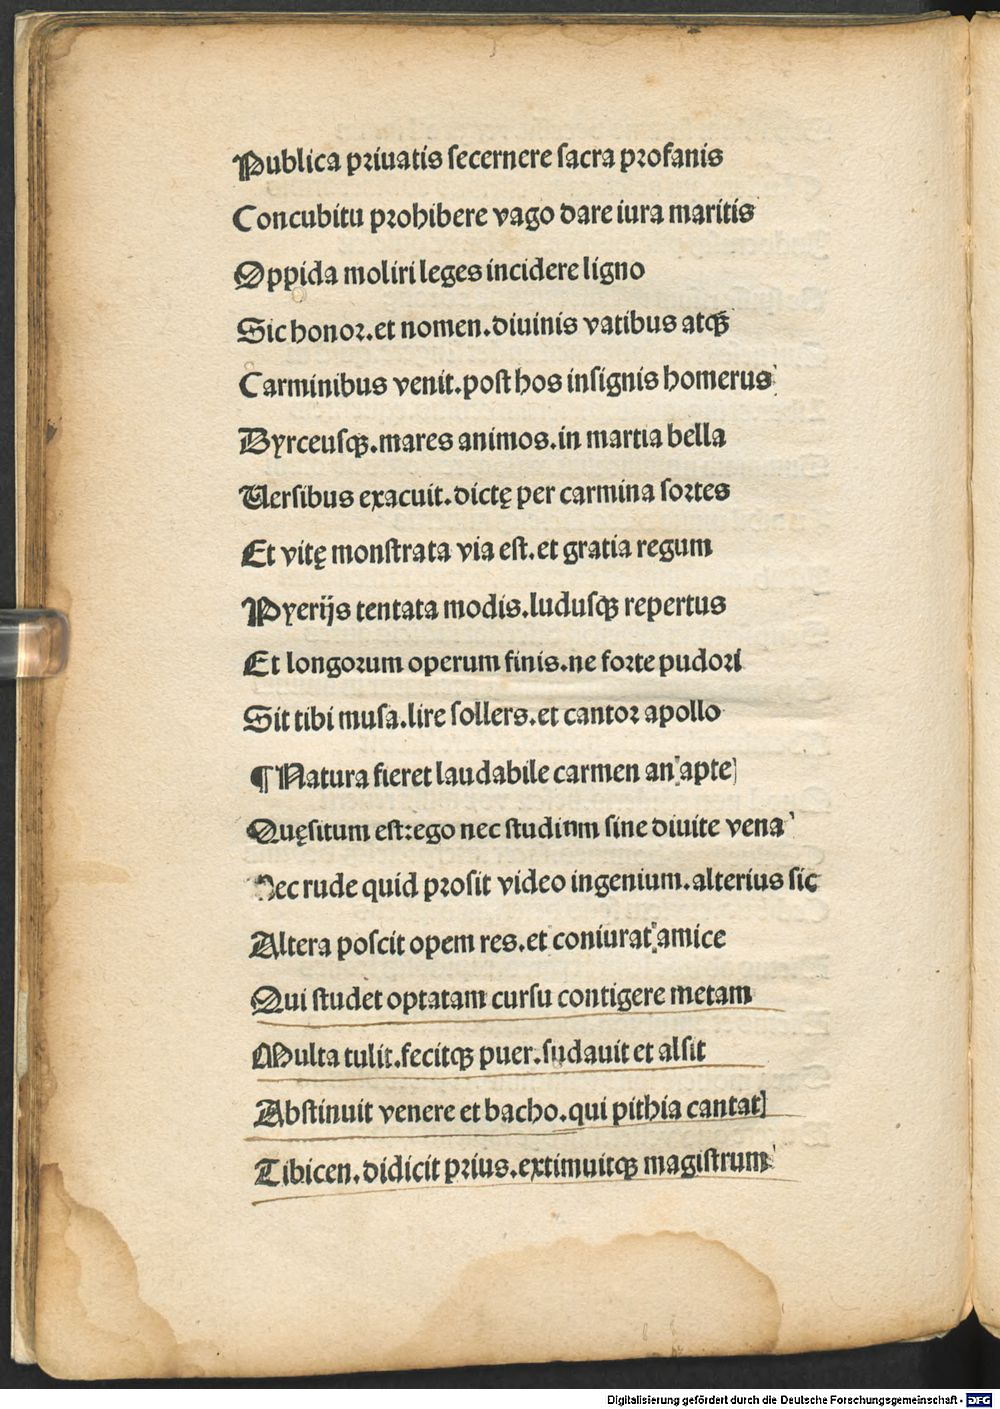 Publica priuatis secernere sacra profanis
Concubitu prohibere vago dare iura maritis
Oppida moliri leges incidere ligno
Sic honor.et nomen.diuinis vatibus atqꝫ
Carminibus venit.post hos insignis homerus
Byrceusqꝫ.mares animos.in martia bella
Uersibus exacuit.dictę per carmina sortes
Et vitę monstrata via est.et gratia regum
Pyerijs tentata modis.ludusqꝫ repertus
Et longorum operum finis.ne forte pudori
Sit tibi musa.lire sollers.et cantor apollo
¶ Natura fieret laudabile carmen an apte
Quęsitum est:ego nec studium sine diuite vena
Nec rude quid prosit video ingenium.alterius sic
Altera poscit opem res.et coniurat amice
Qui studet optatam cursu contigere metam
Multa tulit.fecitqꝫ puer.sudauit et alsit
Abstinuit venere et bacho.qui pithia cantat
Tibicen.didicit prius.extimuitqꝫ magistrum
Digitalisierung gefördert durch die Deutsche Forschungsgemeinschaft - DFG